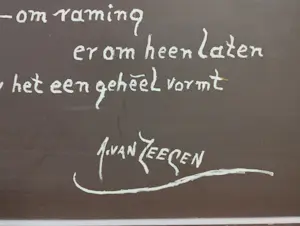 -om raming
er om heen laten
het een geheel vormt
A. VAN ZEEGEN